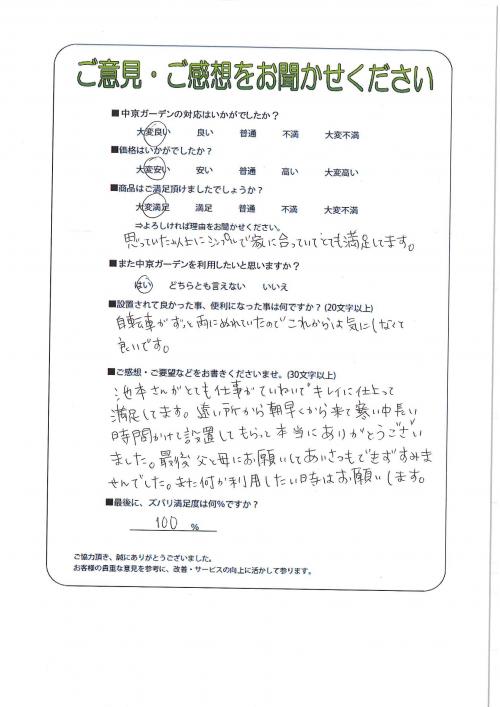 ご意見・ご感想をお聞かせください
■中京ガーデンの対応はいかがでしたか？
大変良い 良い 普通 不満 大変不満
■価格はいかがでしたか？
大変安い 安い 普通 高い 大変高い
■商品はご満足頂けましたでしょうか？
大変満足 満足 普通 不満 大変不満
⇒よろしければ理由をお聞かせください。
思っていた以上にシンプルで家に合っていてとても満足してます。
■また中京ガーデンを利用したいと思いますか？
はい どちらとも言えない いいえ
■設置されて良かった事、便利になった事は何ですか？(20文字以上)
自転車がずっと雨にぬれていたのでこれからは気にしなくて
良いです。
■ご感想・ご要望などをお書きくださいませ。(30文字以上)
池本さんがとても仕事がていねいでキレイに仕上って
満足してます。遠い所から朝早くから来て寒い中長い
時間かけて設置してもらって本当にありがとうござい
ました。最後父と母にお願いしてあいさつもできずすみま
せんでした。また何か利用したい時はお願いします。
■最後に、ズバリ満足度は何％ですか？
100 ％
ご協力頂き、誠にありがとうございました。
お客様の貴重な意見を参考に、改善・サービスの向上に活かして参ります。